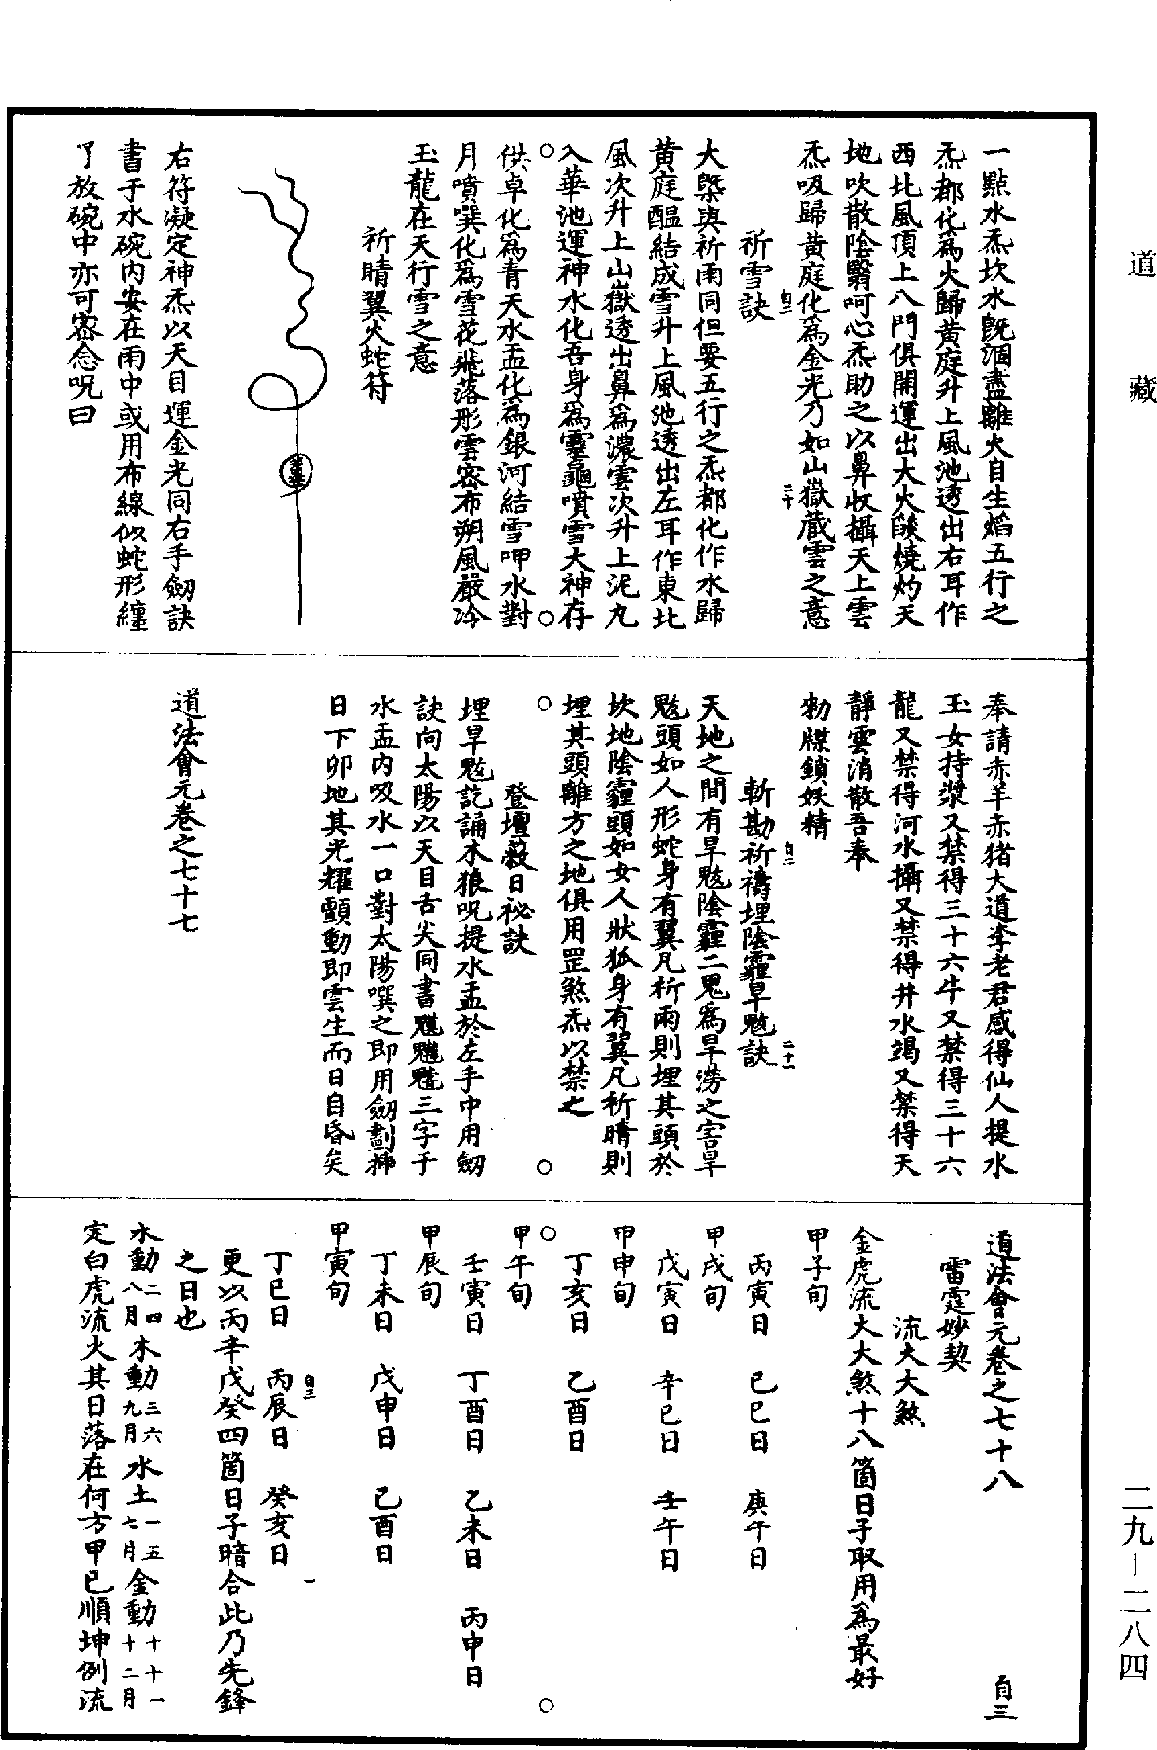 道藏
一點水炁坎水旣涸盡離火自生焰五行之
炁都化爲火歸黄庭升上風池透出右耳作
西北風頂上八門俱開運出大火燄燒灼天
地吹散陰翳呵心炁助之以鼻收攝天上雲
炁吸歸黄庭化爲金光乃如山嶽藏雲之意
祈雪訣
大槩與祈雨同但要五行之炁都化作水歸
黄庭醖結成雪升上風池透出左耳作東北
風次升上山嶽透出鼻爲濃雲次升上泥丸
入華池運神水化吾身爲靈龜噴雪大神存
供卓化爲青天水盂化爲銀河結雪呷水對
月噴噀化爲雪花飛落彤雲密布朔風嚴冷
玉龍在天行雪之意
祈晴翼火蛇符
右符凝定神炁以天目運金光同右手劒訣
書于水碗内安在雨中或用布線似蛇形纏
了放碗中亦可密念呪曰
奉請赤羊赤猪大道李老君感得仙人提水
玉女持漿又禁得三十六牛又禁得三十六
龍又禁得河水攝又禁得井水竭又禁得天
靜雲消散吾奉
勑牒鎖妖精
斬勘祈禱埋陰霾旱魃訣
天地之間有旱魃陰霾二鬼爲旱澇之害旱
魃頭如人形蛇身有翼凡祈雨則埋其頭於
坎地陰霾頭如女人狀狐身有翼凡祈晴則
埋其頭離方之地俱用罡煞炁以禁之
登壇蔽日祕訣
埋旱魃訖誦木狼呪提水盂於左手中用劒
訣向太陽以天目舌尖同書三字于
水盂内吸水一口對太陽噀之即用劒劃掃
日下卯地其光耀顫動即雲生而日自昏矣
道法會元卷之七十七
道法會元卷之七十八
自三
雷霆妙契
流大大煞
金虎流大大煞十八箇日子取用爲最好
甲子旬
丙寅日 己巳日 庚午日
甲戌旬
戊寅日 辛巳日 壬午日
甲申旬
丁亥日 乙酉日
甲午旬
壬寅日 丁酉日 乙未日 丙申日
甲辰旬
丁未日 戊申日 己酉日
甲寅旬
丁巳日 丙辰日 癸亥日
更以丙辛戊癸四箇日子暗合此乃先鋒
之日也
水動二四八月木動三六九月水土一五七月金動十十一十二月
定白虎流火其日落在何方甲巳順坤例流
二九—二八四